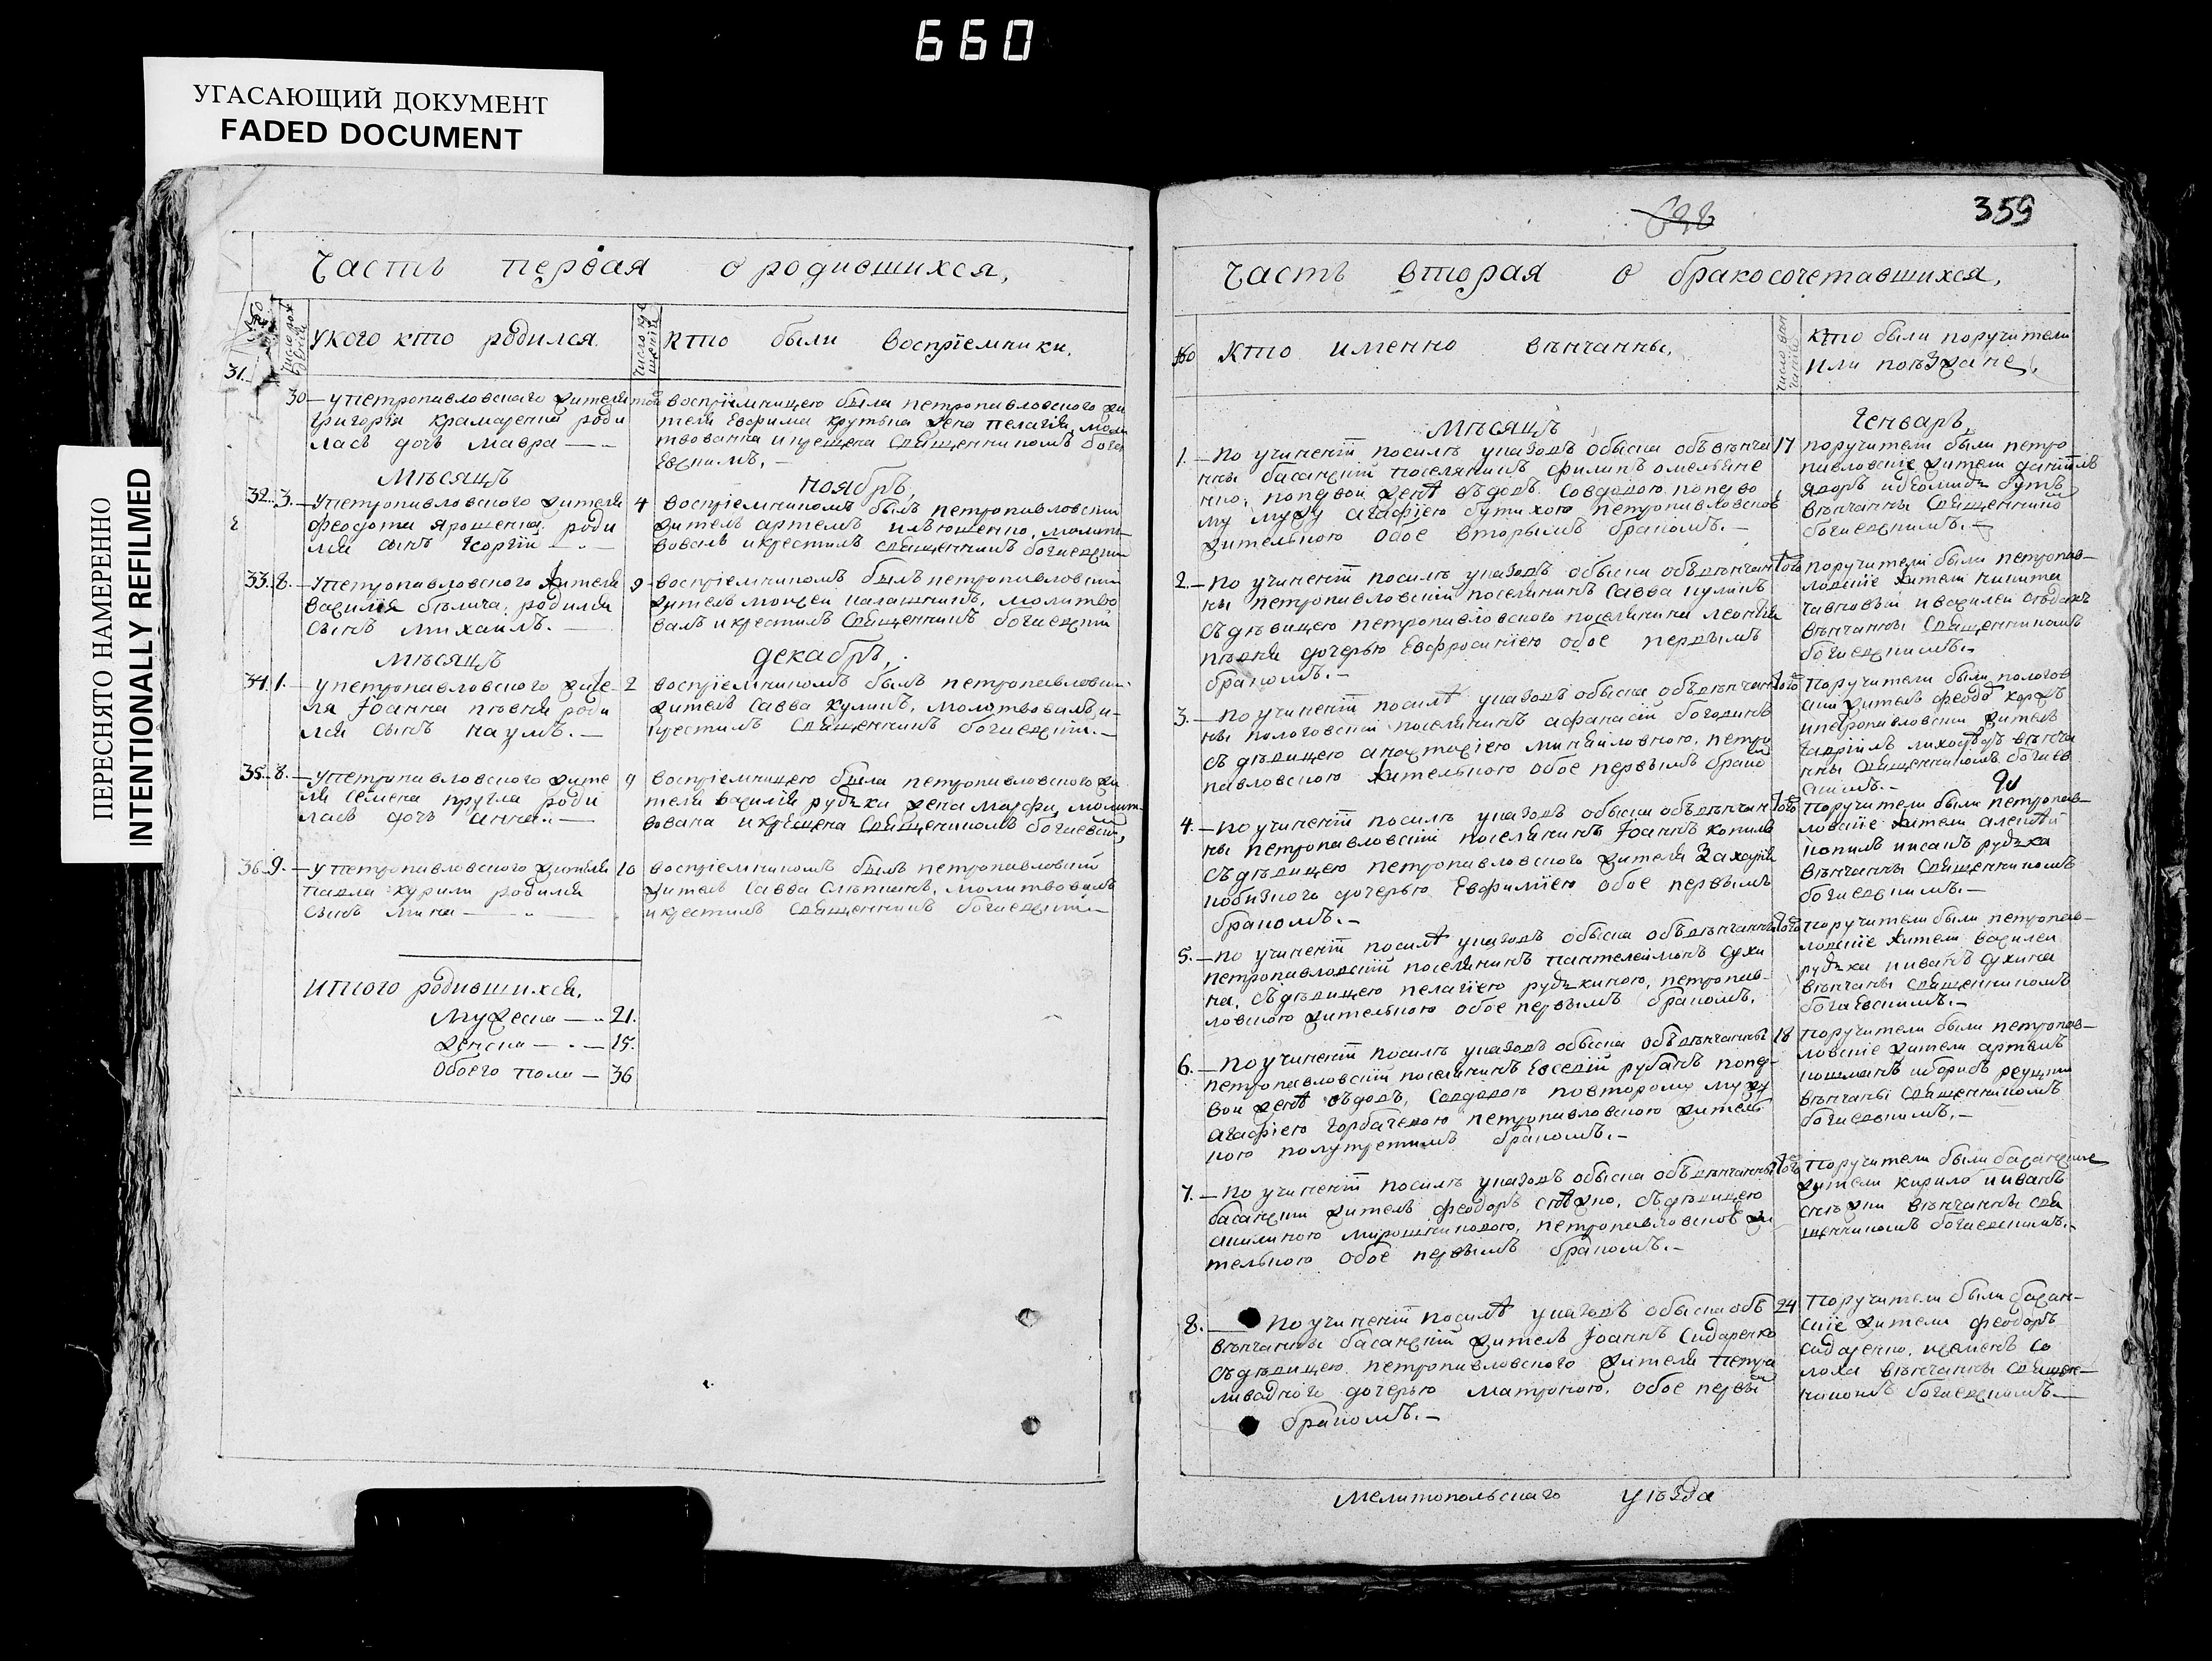 660
УГАСАЮЩИЙ ДОКУМЕНТ
FADED DOCUMENT
ПЕРЕСНЯТО НАМЕРЕННО
INTENTIONALLY REFILMED
Часть первая о родившихся,
Число рождения
У кого кто родился
Число крещенія
Кто были воспріемники,
31.
30 — у петропавловскаго жителя
григорія крамаренка роди
лась дочь мавра —
той
воспріемницею была петропавловского жи
теля евфима жена пелагія, моли
твованна и крещена священникомъ богаевскимъ. —
Мѣсяцъ ноябрь,
32. 3. — у петропавловского жителя
феодота ярошенка роди
лся сынъ георгій —
4
воспріемникомъ былъ петропавловскій
житель артемъ молит
вовалъ и крестилъ священникъ богаевскій
33. 8. — у петропавловского жителя
василія бѣлича, родился
сынъ михаилъ. —
9
воспріемникомъ былъ петропавловскій
житель моисей калашникъ, молитво
валъ и крестилъ священникъ богаевскій
Мѣсяцъ декабрь,
34. 1. — у петропавловского жите
ля Іоанна пѣвня роди
лся сынъ наумъ. —
2
воспріемникомъ былъ петропавловскій
житель савва куликъ, молитвовалъ и
крестилъ священникъ богаевскій. —
35. 8. — у петропавловского жите
ля семена кругла роди
лась дочь анна. —
9
воспріемницею была петропавловского жи
теля василія рудька жена марфа, молит
вована и крещена священникомъ богаевскимъ,
36. 9. — у петропавловского жителя
павла курили родился
сынъ мина —
10
воспріемникомъ былъ петропавловскій
житель савва слѣпакъ, молитвовалъ
и крестилъ священникъ богаевскій —
Итого родившихся,
Мужеска — 21.
женска — 15.
Обоего пола — 36
359
Часть вторая о бракосочетавшихся,
Кто именно вѣнчанны,
Число вѣнчанія
Кто были поручители
или поѣзжане,
Мѣсяцъ Генварь,
1. — По учиненіи посилѣ указовъ обыска объ вѣнча
ны басанскій поселянинъ филипъ омельяне
нко, по первой женѣ вдовъ, со вдовою по перво
му мужу агафіею бутихою петропавловской
жительною обое вторымъ бракомъ. —
17
поручители были петро
павловскіе жители даніилъ
яворъ бутъ
вѣнчанны священнико
богаевскимъ. —
2. — По учиненіи посилѣ указовъ обыска объ вѣнчан
ны петропавловскій поселянинъ савва куликъ
съ дѣвицею петропавловского поселянина леонтія
пѣвня дочерью евфросиніею обое первымъ
бракомъ. —
того
поручители были петропав
ловскіе жители никита
и василей
вѣнчанны священникомъ
богаевскимъ. —
3. — По учиненіи посилѣ указовъ обыска объ вѣнчан
ны пологовскій поселянинъ афанасій богодинъ
съ дѣвицею анастасіею михайловною, петро
павловскою жительною обое первымъ брако
того
поручители были пологов
скій житель феодоръ коржъ
и петропавловскій житель
гавріилъ вѣнча
нны священникомъ богаев
скимъ. —
4. — По учиненіи посилѣ указовъ обыска объ вѣнчан
ны петропавловскій поселянинъ Іоаннъ копилъ
съ дѣвицею петропавловского жителя захарія
кобизкого дочерью Евфиміею обое первымъ
бракомъ. —
того
поручители были петропав
ловскіе жители алексѣй
копилъ исакъ рудька
вѣнчанны священникомъ
богаевскимъ. —
5. — По учиненіи посилѣ указовъ обыска объ вѣнчанны
петропавловскій поселянинъ пантелеймонъ сухи
на, съ дѣвицею пелагіею рудькиною, петропав
ловскою жительною обое первымъ бракомъ.
того
поручители были петропав
ловскіе жители василей
рудька и иванъ сухина
вѣнчаны священникомъ
богаевскимъ. —
6. — По учиненіи посилѣ указовъ обыска объ вѣнчанны
петропавловскій поселянинъ евсевій рубанъ по пер
вой женѣ вдовъ, со вдовою по второму мужу
агафіею горбачевою петропавловскою житель
ною полутретимъ бракомъ. —
18
поручители были петропав
ловскіе жители артемъ
и борисъ
вѣнчаны священникомъ
богаевскимъ. —
7. — По учиненіи посилѣ указовъ обыска объ вѣнчанны
басанскій житель феодоръ снѣжко, съ дѣвицею
акилиною мирошниковою, петропавловской жи
тельною обое первымъ бракомъ. —
того
поручители были басанскіе
жители кирило и иванъ
снѣжки вѣнчанны свя
щенникомъ богаевскимъ. —
8. — По учиненіи посилѣ указовъ обыска объ
вѣнчанны басанскій житель Іоаннъ сидаренко
съ дѣвицею петропавловского жителя петра
ливадного дочерью матроною, обое первы
бракомъ. —
24
Поручители были басан
скіе жители феодоръ
сидаренко, и семенъ со
лоха вѣнчанны священ
никомъ богаевскимъ —
Мелитопольскаго уѣзда